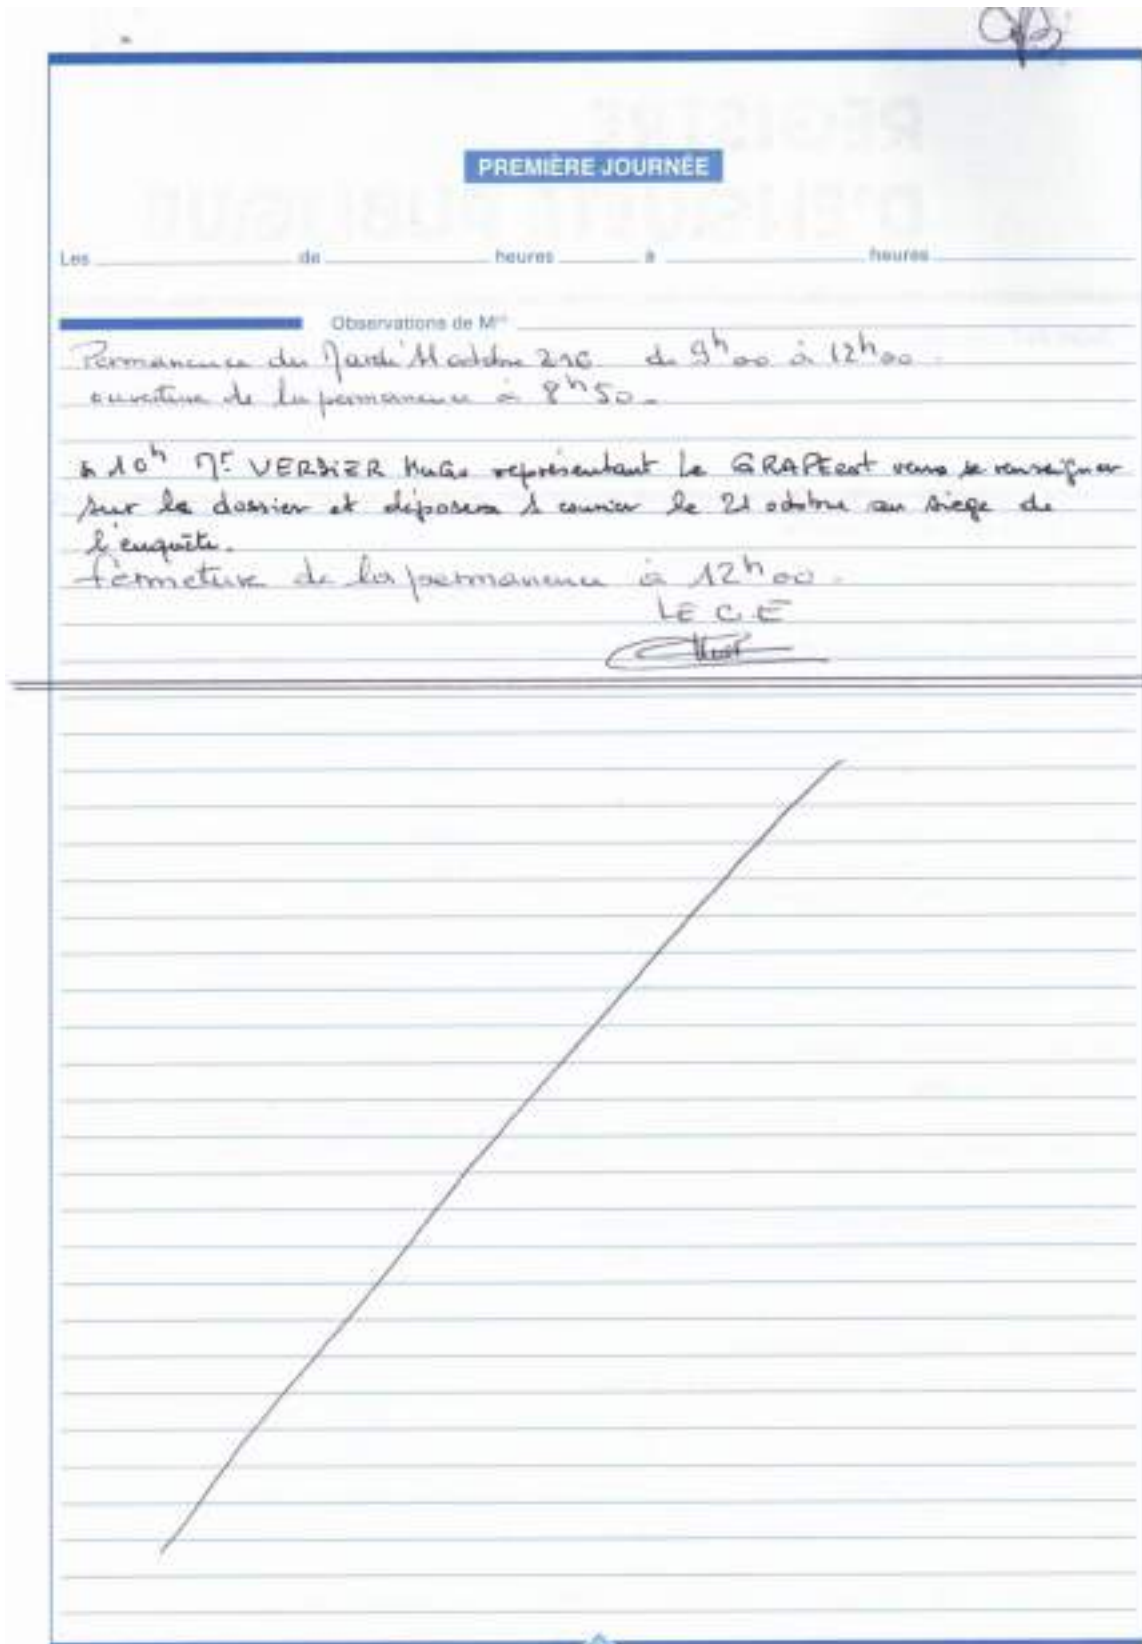 PREMIÈRE JOURNÉE
Les de heures à heures
Observations de Mrs
Permanence du Mardi 11 octobre 216 de 9h00 à 12h00.
ouverture de la permanence à 8h50.
à 10h Mr VERDIER HuGo représentant Le GRAPE est venu se renseigner
sur le dossier et déposera 1 courrier le 21 octobre au siège de
l'enquête.
fermeture de la permanence à 12h00.
LE C.E